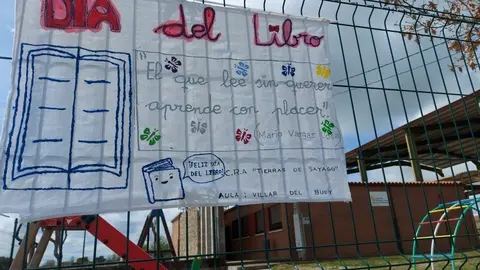 DIA del Libro
"El que lee sin querer
aprende con placer".
(Mario Vargas
¡FELIZ DIA
DEL LIBRO!
C.R.A "TIERRAS DE SAYAGO"
AULA: VILLAR DEL BUEY